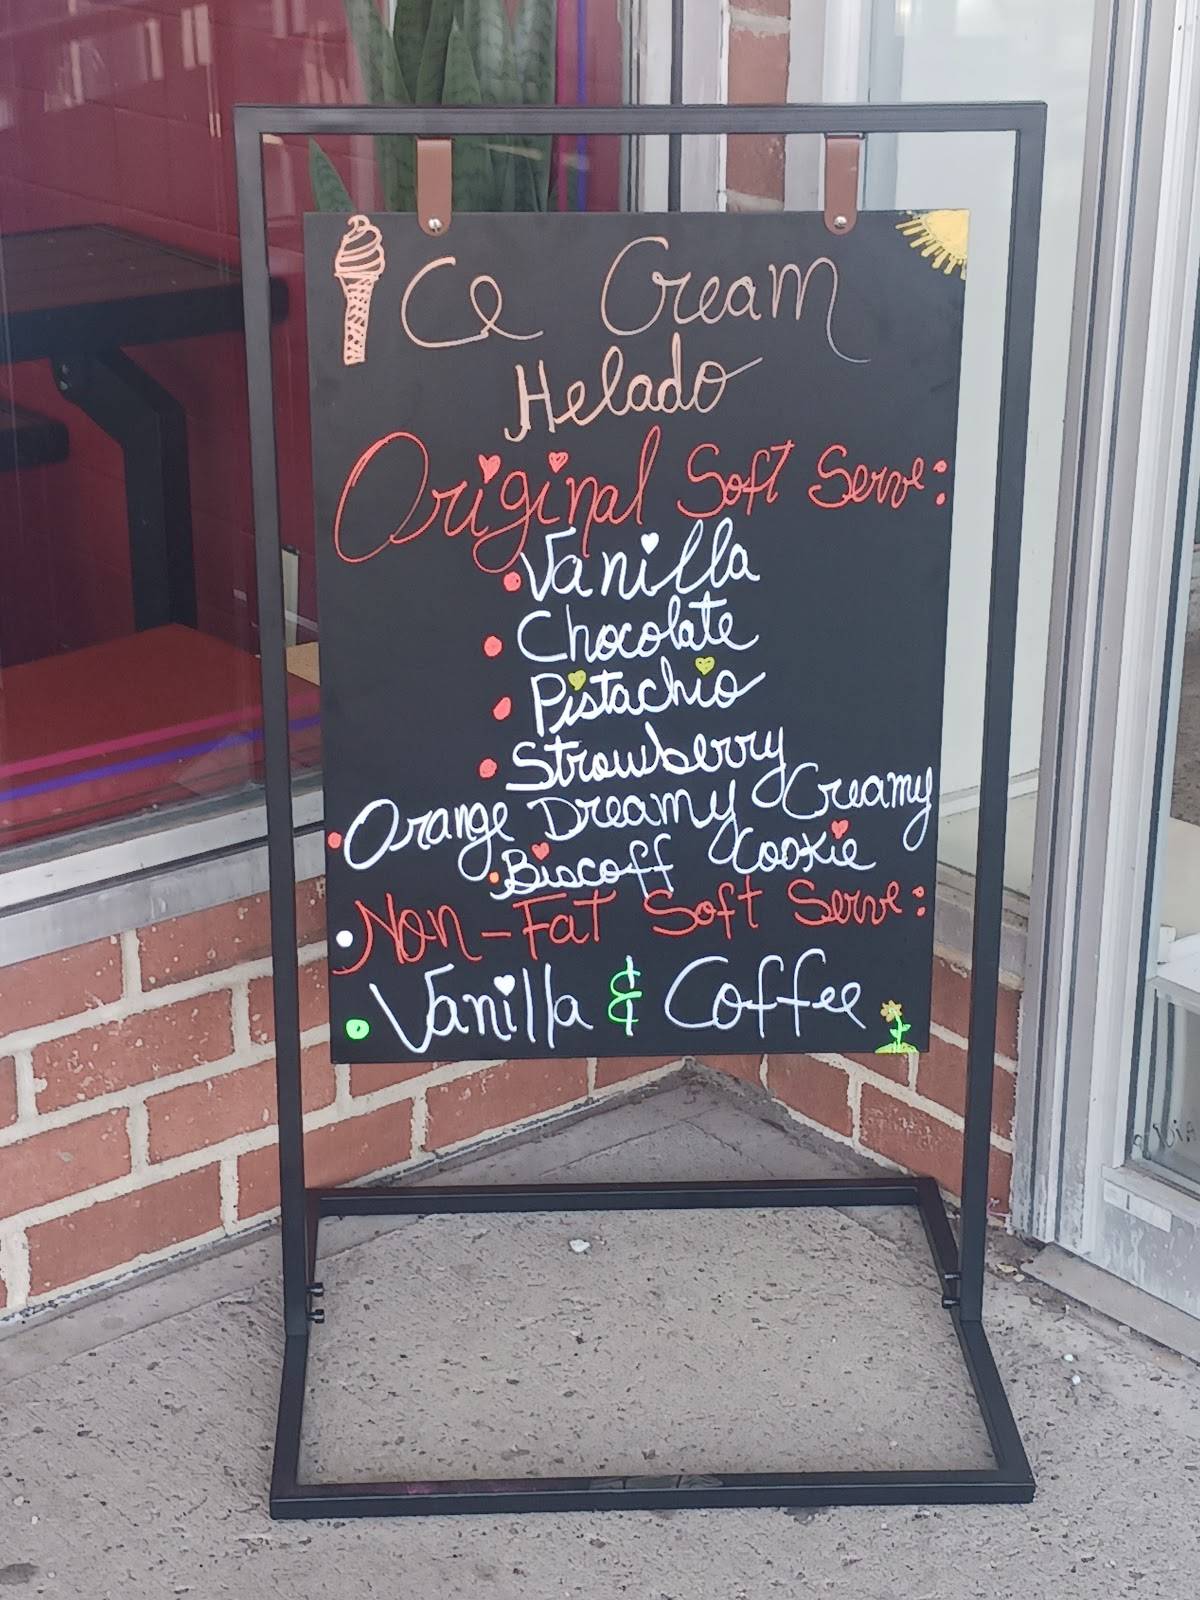 Ice Cream
Helado
Original Soft Serve:
• Vanilla
• Chocolate
• Pistachio
• Strowberry
• Orange Dreamy Creamy
• Biscoff Cookie
• Non-Fat Soft Serve:
• Vanilla & Coffee